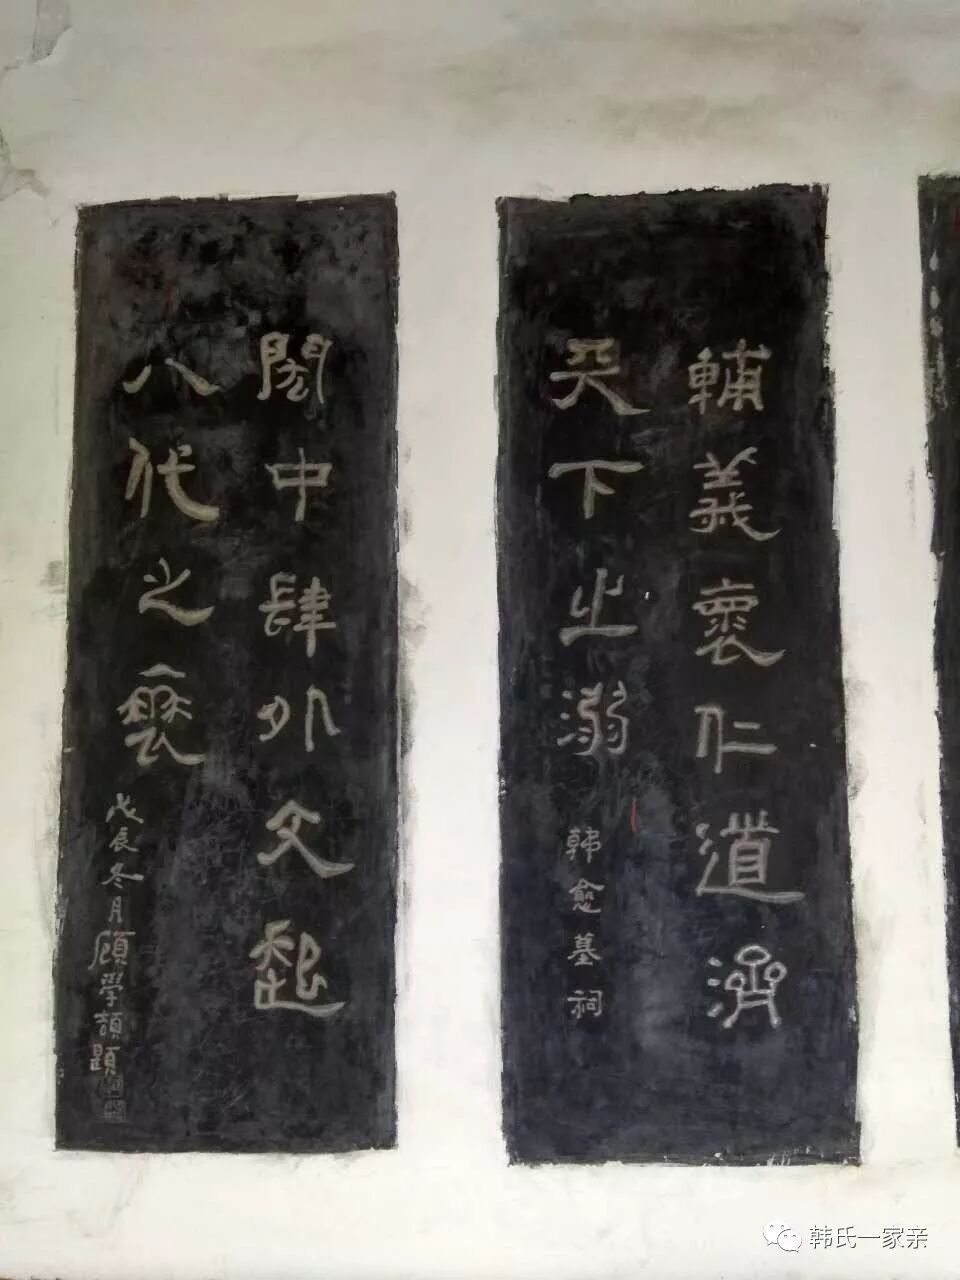 輔義裹仁道濟
天下之溺
韩愈墓祠
閎中肆外文起
八代之衰
戊辰冬月顧學頡題
韩氏一家亲